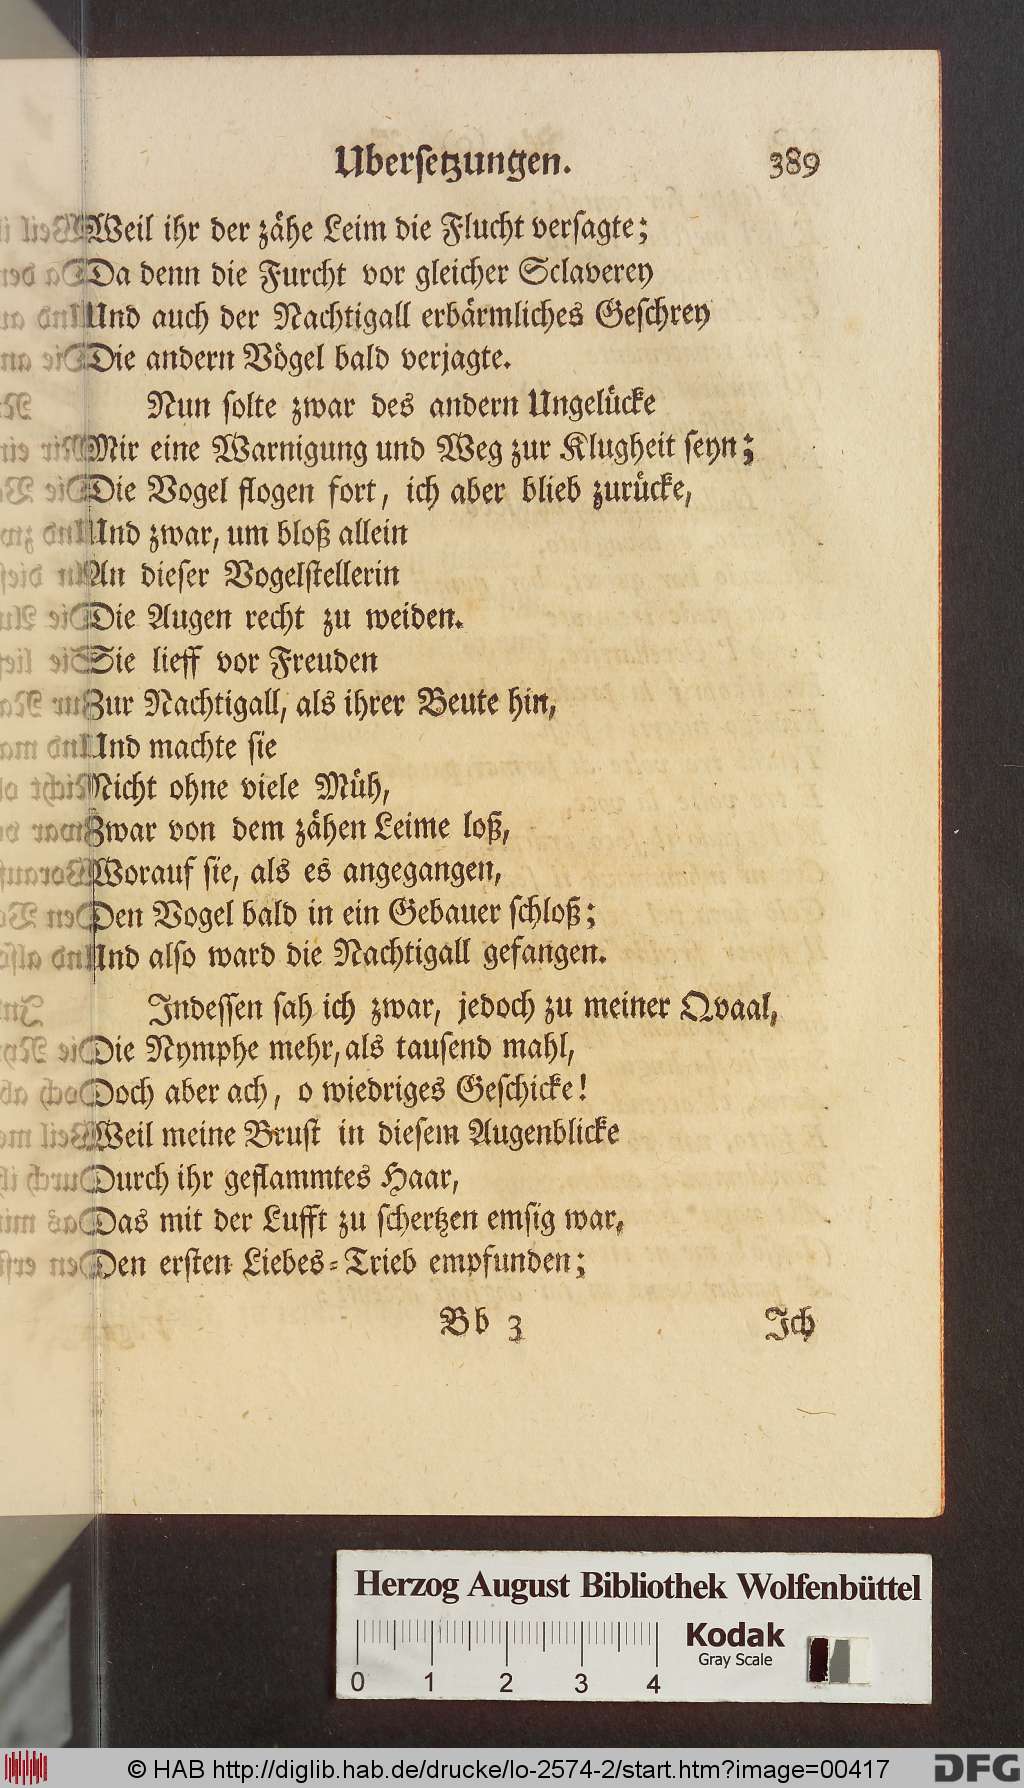 Ubersetzungen. 389
Weil ihr der zähe Leim die Flucht versagte;
Da denn die Furcht vor gleicher Sclaverey
Und auch der Nachtigall erbärmliches Geschrey
Die andern Vögel bald verjagte.
Nun solte zwar des andern Ungelücke
Mir eine Warnigung und Weg zur Klugheit seyn;
Die Vogel flogen fort, ich aber blieb zurücke,
Und zwar, um bloß allein
An dieser Vogelstellerin
Die Augen recht zu weiden.
Sie lieff vor Freuden
Zur Nachtigall, als ihrer Beute hin,
Und machte sie
Nicht ohne viele Müh,
Zwar von dem zähen Leime loß,
Worauf sie, als es angegangen,
Den Vogel bald in ein Gebauer schloß;
Und also ward die Nachtigall gefangen.
Indessen sah ich zwar, jedoch zu meiner Qvaal,
Die Nymphe mehr, als tausend mahl,
Doch aber ach, o wiedriges Geschicke!
Weil meine Brust in diesem Augenblicke
Durch ihr geflammtes Haar,
Das mit der Lufft zu schertzen emsig war,
Den ersten Liebes-Trieb empfunden;
Bb 3 Ich
Herzog August Bibliothek Wolfenbüttel
Kodak
Gray Scale
0 1 2 3 4
© HAB http://diglib.hab.de/drucke/lo-2574-2/start.htm?image=00417
DFG